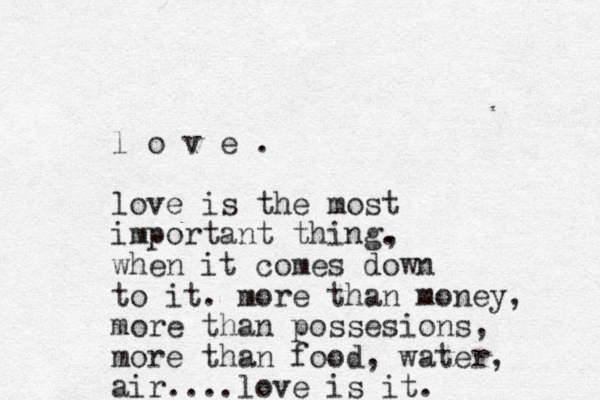 l o v e .
love is the most
important thing,
when it comes down
to it. more than money,
more than possesions,
more than food, water,
air....love is it.